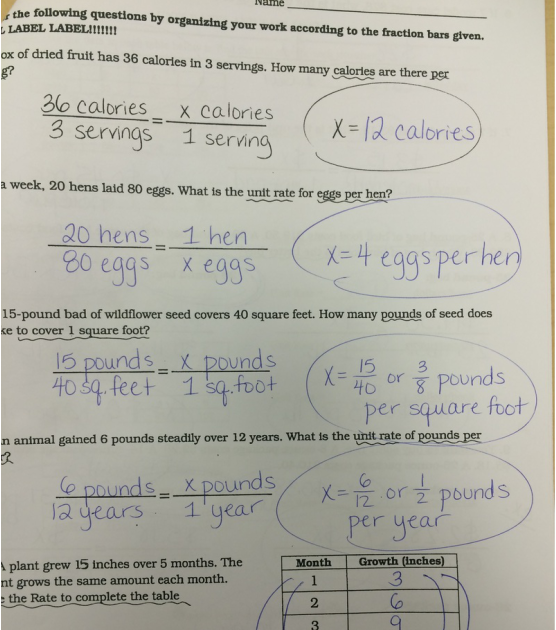 Name
the following questions by organizing your work according to the fraction bars given.
LABEL LABEL!!!!!!!
ox of dried fruit has 36 calories in 3 servings. How many calories are there per
g?
36 calories / 3 servings = x calories / 1 serving
X = 12 calories
a week, 20 hens laid 80 eggs. What is the unit rate for eggs per hen?
20 hens / 80 eggs = 1 hen / x eggs
X = 4 eggs per hen
15-pound bad of wildflower seed covers 40 square feet. How many pounds of seed does
ke to cover 1 square foot?
15 pounds / 40 sq. feet = x pounds / 1 sq. foot
X = 15/40 or 3/8 pounds
per square foot
n animal gained 6 pounds steadily over 12 years. What is the unit rate of pounds per
?
6 pounds / 12 years = x pounds / 1 year
X = 6/12 or 1/2 pounds
per year
plant grew 15 inches over 5 months. The
nt grows the same amount each month.
the Rate to complete the table
Month Growth (inches)
1 3
2 6
3 9